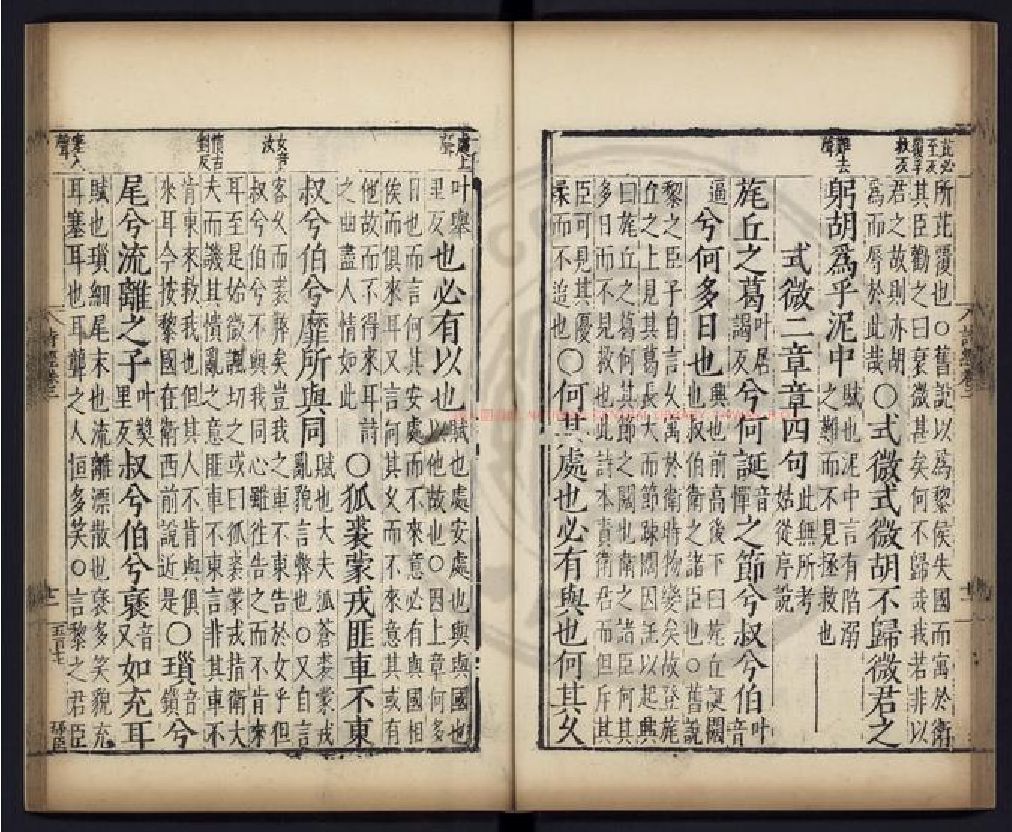 芘必至反覆芳救反
難去聲
所芘覆也○舊說以為黎侯失國而寓於衛
其臣勸之曰衰微甚矣何不歸哉我若非以
君之故則亦胡為而辱於此哉○式微式微胡不歸微君之
躬胡為乎泥中賦也泥中言有陷溺之難而不見拯救也
式微二章章四句此無所考姑從序說
旄丘之葛叶居謁反兮何誕音憚之節兮叔兮伯叶音
逼兮何多日也興也前高後下曰旄丘誕闊也叔伯衛之諸臣也○舊說
黎之臣子自言久寓於衛時物變矣故登旄
丘之上見其葛長大而節疎闊因託以起興
曰旄丘之葛何其節之闊也衛之諸臣何其
多日而不見救也此詩本責衛君而但斥其
臣可見其優柔而不迫也○何其處也必有與也何其久
處上聲
女音汝
憒古對反
塞入聲
叶舉里反也必有以也賦也處安處也與與國也以他故也○因上章何多
日也而言何其安處而不來意必有與國相
俟而俱來耳又言何其久而不來意其或有
他故而不得來耳詩之曲盡人情如此○狐裘蒙戎匪車不東
叔兮伯兮靡所與同賦也大夫狐蒼裘蒙戎亂貌言弊也○又自言
客久而裘弊矣豈我之車不東告於女乎但
叔兮伯兮不與我同心雖往告之而不肯來
耳至是始微諷切之或曰狐裘蒙戎指衛大
夫而譏其憒亂之意匪車不東言非其車不
肯東來救我也但其人不肯與俱來耳今按黎國在衛西前說近是○瑣音鎖兮
尾兮流離之子叶獎里反叔兮伯兮褎音又如充耳
賦也瑣細尾末也流離漂散也褎多笑貌充
耳塞耳也耳聾之人恒多笑○言黎之君臣